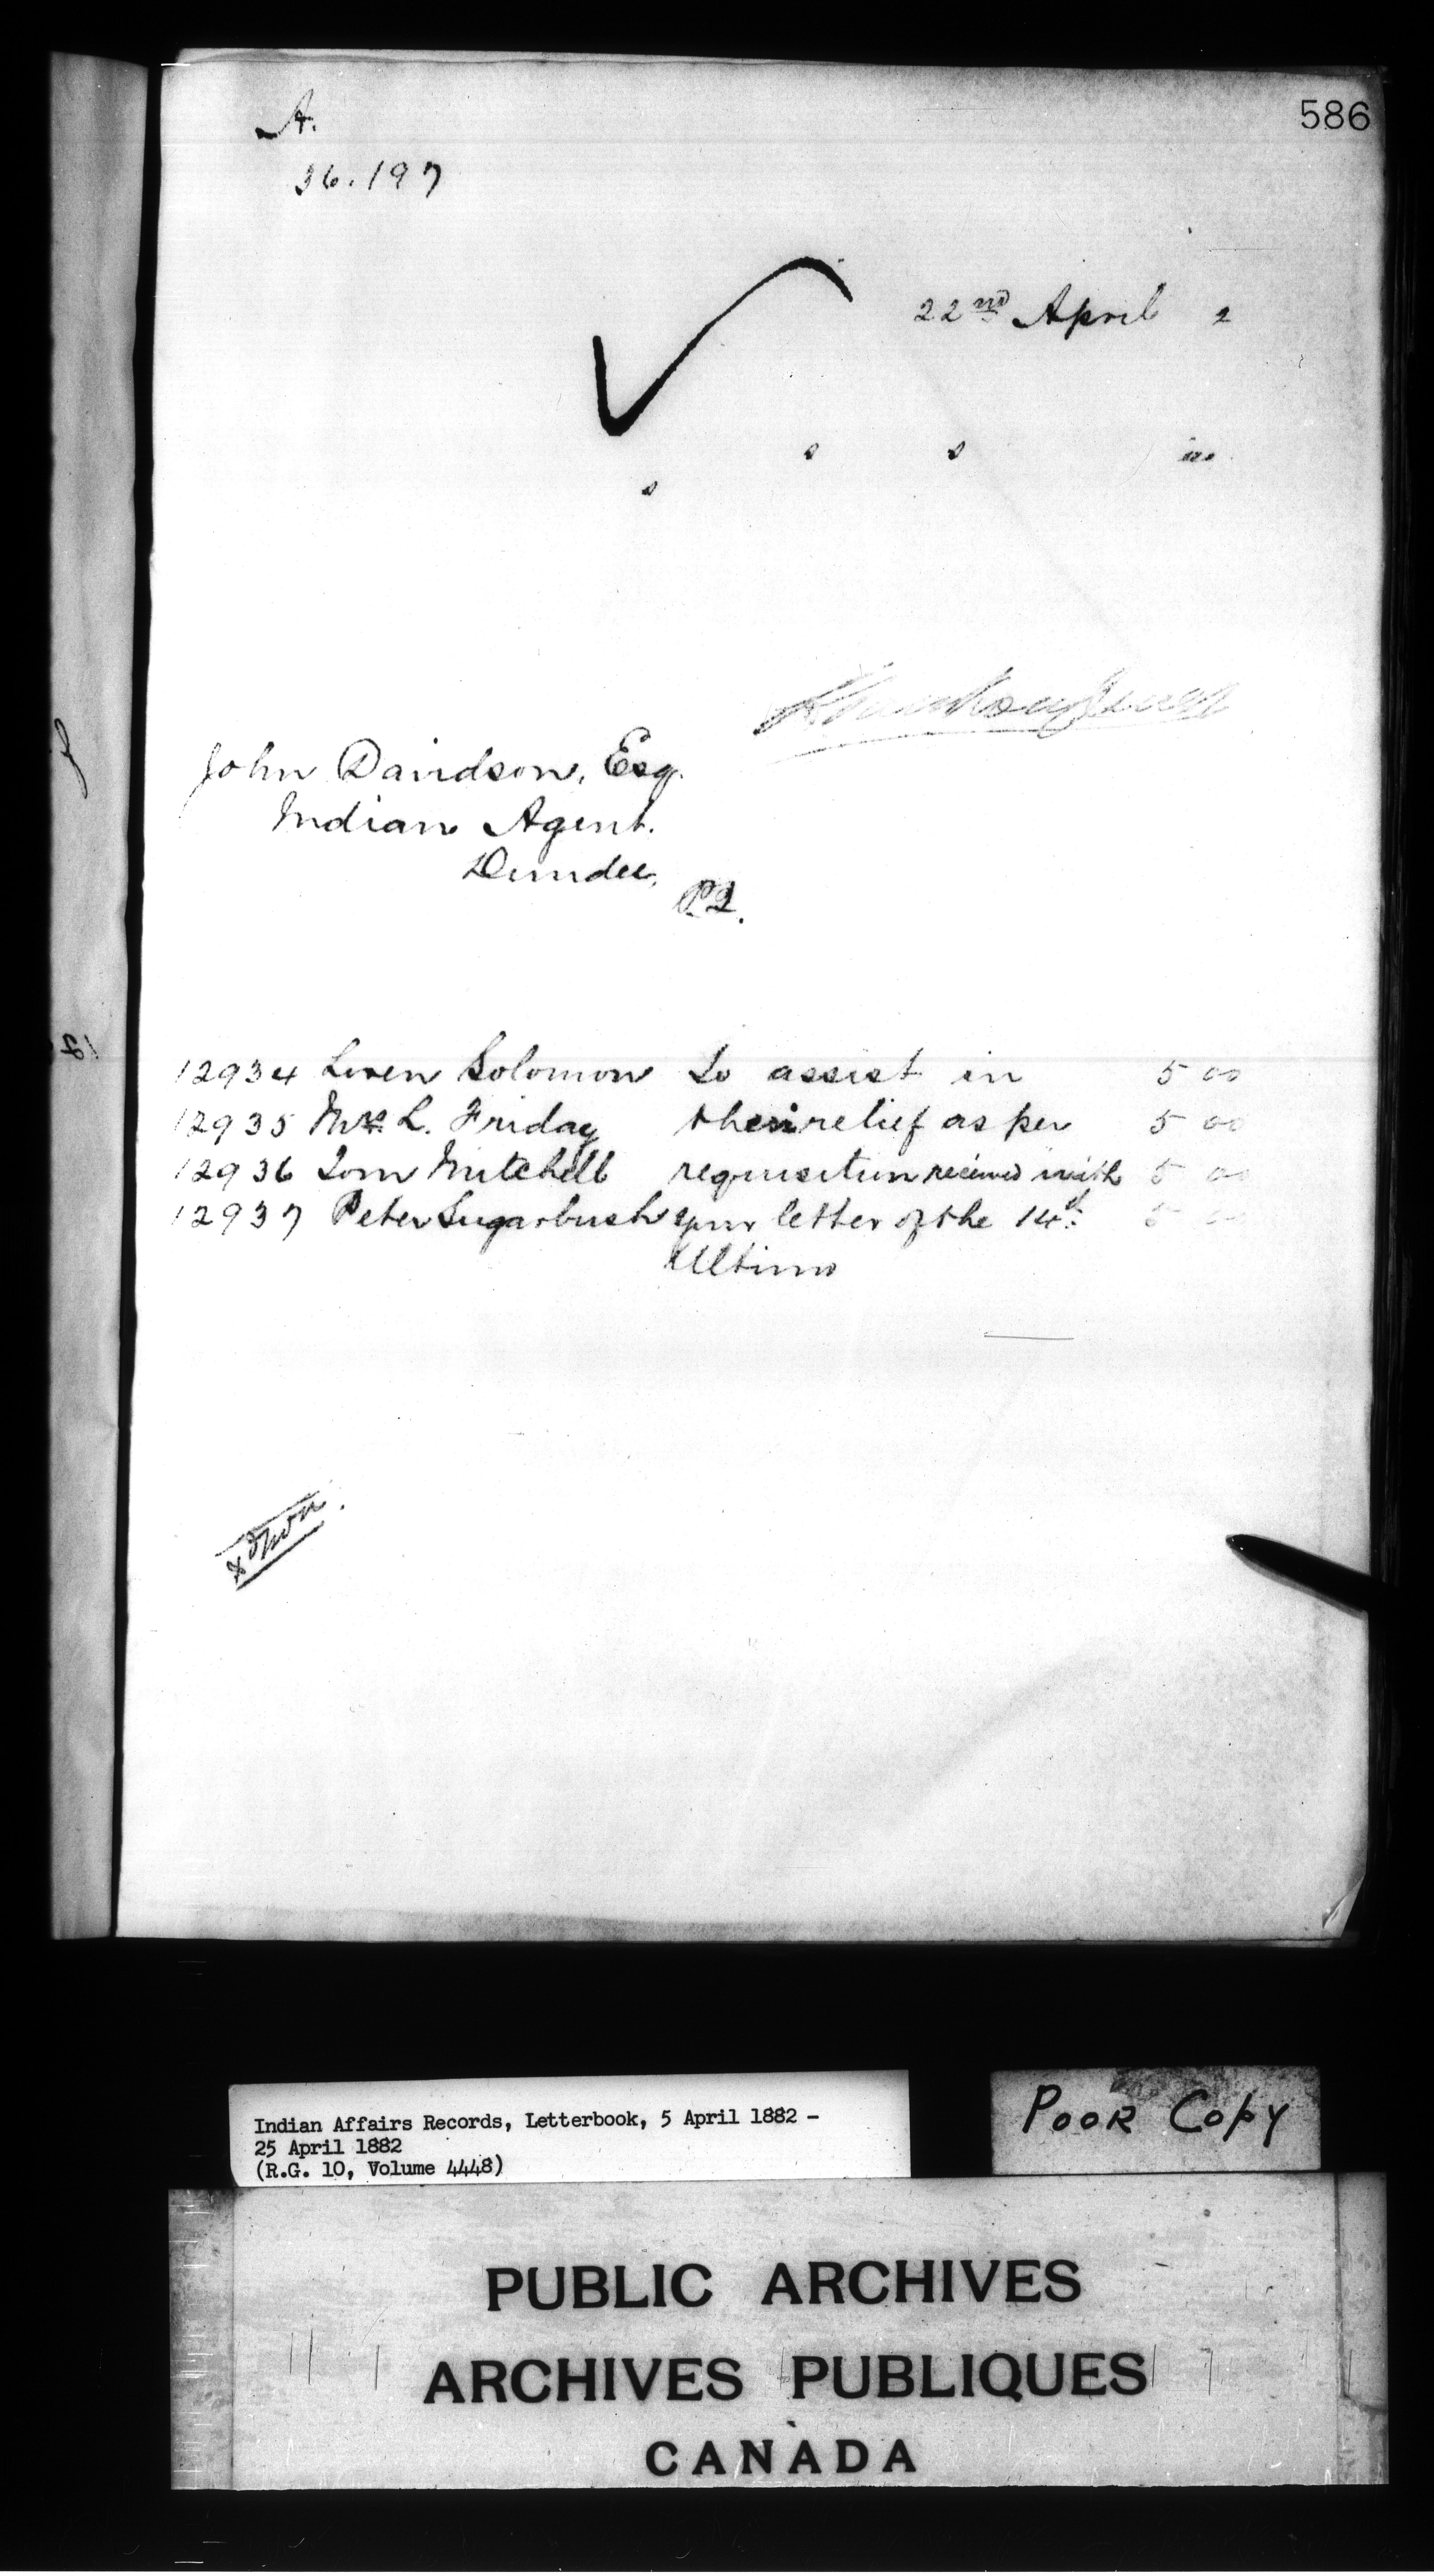 586
A.
36.197
22nd April 2
s s in
s
John Davidson, Esq.
Indian Agent.
Dundee,
P.Q.
12934 Loren Solomon To assist in 5 00
12935 Mrs. L. Friday their relief as per 5 00
12936 Tom Mitchell requisition received with 5 00
12937 Peter Sugarbush your letter of the 14th 5 00
Ultimo
Indian Affairs Records, Letterbook, 5 April 1882 –
25 April 1882
(R.G. 10, Volume 4448)
POOR COPY
PUBLIC ARCHIVES
ARCHIVES PUBLIQUES
CANADA